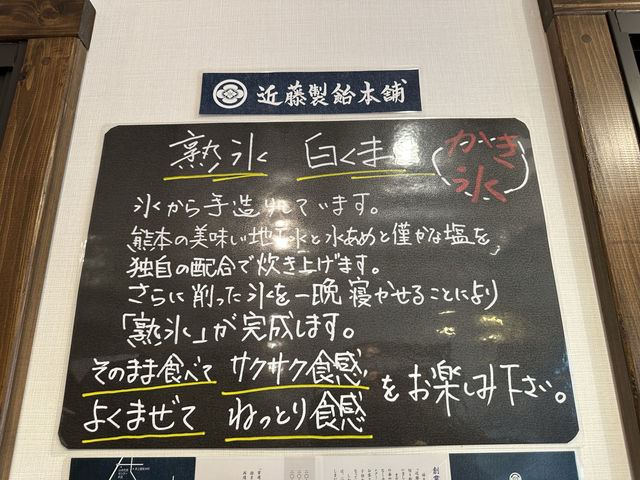 近藤製飴本舗
熟氷 白くま
かき
氷
氷から手造りしています。
熊本の美味い地下水と水あめと僅かな塩を
独自の配合で炊き上げます。
さらに削った氷を一晩寝かせることにより
「熟氷」が完成します。
そのまま食べて サクサク食感
よくまぜて ねっとり食感
をお楽しみ下さい。